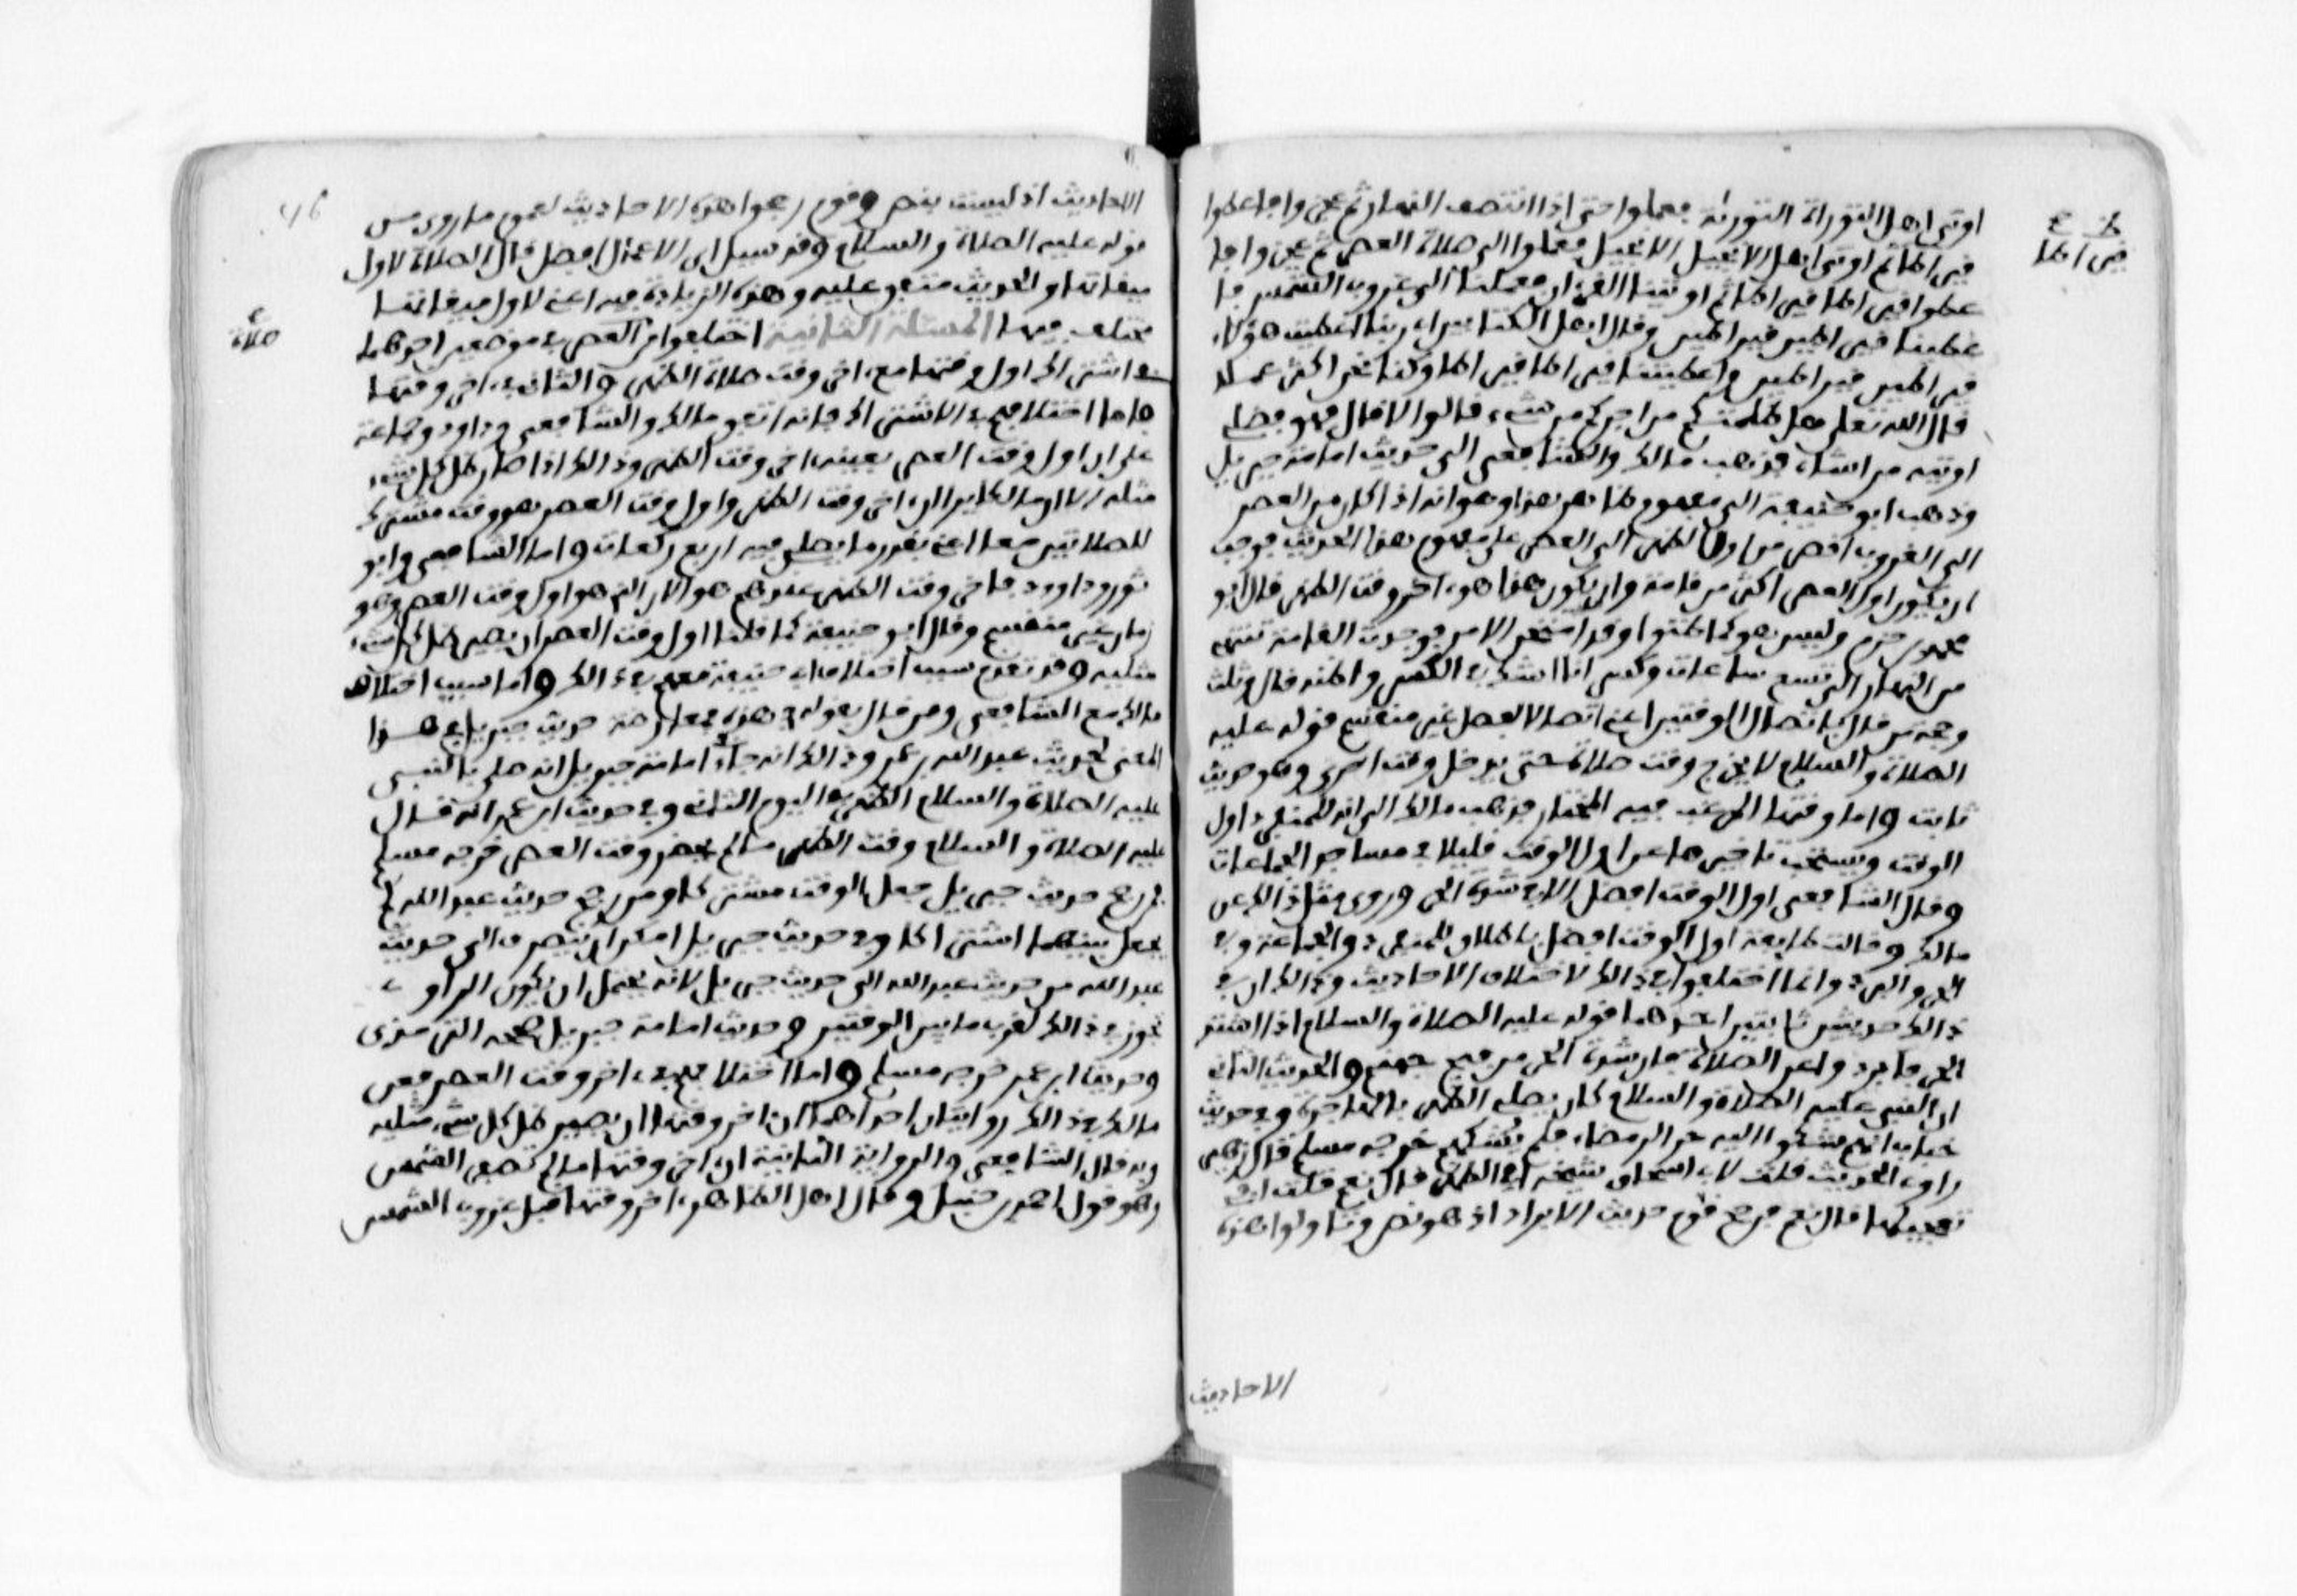 اوتى اهل التوراة التورية فعملوا حتى اذا انتصف النهار ثم عجزوا فاعطوا
قيراطا ثم اوتى اهل الانجيل الانجيل فعملوا الى صلاة العصر ثم عجزوا فا
عطوا قيراطا قيراطا ثم اوتينا القرءان فعملنا الى غروب الشمس فا
عطينا قيراطين قيراطين وقال اهل الكتابين اي ربنا اعطيت هؤلاء
قيراطين قيراطين واعطيتنا قيراطا قيراطا وكنا نحن اكثر عملا
قال الله تعلى هل ظلمتكم من اجركم من شيء قالوا لا قال فهو فضلي
اوتيه من اشاء فذهب مالك والشافعي الى حديث امامة جبريل
وذهب ابو حنيفة الى مفهوم ظاهر هذا وهو انه اذا كان من العصر
الى الغروب اقصر من اول الظهر الى العصر على مفهوم هذا الحديث فوجب
ان يكون اول العصر اكثر من قامة وان يكون هذا هو ءاخر وقت الظهر قال ابو
محمد بن حزم وليس هو كما ظنوا وقد امتحن الامر فوجدت القامة تنتهي
من النهار الى تسع ساعات وكسر انا الشك في الكسر واظنه قال وثلث
وحجة من قال باتصال الوقتين اعني اتصالا لا بفصل غير منقسم قوله عليه
الصلاة والسلام لا يخرج وقت صلاة حتى يدخل وقت اخرى وهو حديث
ثابت واما وقتها المرغب فيه المختار فذهب مالك الى انه للمنفرد اول
الوقت ويستحب تاخيرها عن اول الوقت قليلا في مساجد الجماعات
وقال الشافعي اول الوقت افضل الا في شدة الحر وروي مثل ذالك عن
مالك وقالت طايفة اول الوقت افضل باطلاق للمنفرد والجماعة وفي
الحر والبرد وانما اختلفوا في ذالك لاختلاف الاحاديث وذالك ان في
ذالك حديثين ثابتين احدهما قوله عليه الصلاة والسلام اذا اشتد
الحر فابردوا عن الصلاة فان شدة الحر من فيح جهنم والحديث الثاني
ان النبي عليه الصلاة والسلام كان يصلي الظهر بالهاجرة وفي حديث
خباب انهم شكوا اليه حر الرمضاء فلم يشكهم خرجه مسلم قال زهير
راوي الحديث قلت لابي اسحاق شيخه افي الظهر قال نعم قلت افي
تعجيلها قال نعم فرجح قوم حديث الابراد اذ هو نص وتاولوا هذه
الاحاديث
قيراطا
46
الاحاديث اذ ليست بنص وقوم رجحوا هذه الاحاديث لعموم ما روي من
قوله عليه الصلاة والسلام وقد سيل اي الاعمال افضل قال الصلاة لاول
ميقاتها والحديث متفق عليه وهذه الزيادة فيه اعني لاول ميقاتها
مختلف فيها المسئلة الثانية اختلفوا من العصر في موضعين احدهما
في اشتراك اول وقتها مع ءاخر وقت صلاة الظهر والثاني في ءاخر وقتها
فاما اختلافهم في الاشتراك فانه اتفق مالك والشافعي وداود وجماعة
على ان اول وقت العصر بعينه ءاخر وقت الظهر وذالك اذا صار ظل كل شيء
مثله الا ان مالكا يرى ان ءاخر وقت الظهر واول وقت العصر هو وقت مشترك
للصلاتين معا اعني بقدر ما يصلى فيه اربع ركعات واما الشافعي وابو
ثور وداوود فاخر وقت الظهر عندهم هو الان الذي هو اول وقت العصر وهو
زمان غير منقسم وقال ابو حنيفة كما قلنا اول وقت العصر ان يصير ظل كل شيء
مثليه وقد تقدم سبب اختلاف ابي حنيفة معهم في ذالك واما سبب اختلاف
مالك مع الشافعي ومن قال بقوله في هذه فمعارضة حديث جبريل في هذا
المعنى لحديث عبد الله بن عمر وذالك انه جاء في امامة جبريل انه صلى بالنبي
عليه الصلاة والسلام الظهر في اليوم الثاني وفي حديث ابن عمر انه قال
عليه الصلاة والسلام وقت الظهر ما لم يحضر وقت العصر خرجه مسلم
فمن رجح حديث جبريل جعل الوقت مشتركا ومن رجح حديث عبد الله لم
يجعل بينهما اشتراكا وفي حديث جبريل امكن ان يتصرف الى حديث
عبد الله من حديث عبد الله الى حديث جبريل لانه يحتمل ان يكون الراوي
تجوز في ذالك لقرب ما بين الوقتين وحديث امامة جبريل صححه الترمذي
وحديث ابن عمر خرجه مسلم واما اختلافهم في ءاخر وقت العصر فعن
مالك في ذالك روايتان احداهما ان ءاخر وقتها ان يصير ظل كل شيء مثليه
وبه قال الشافعي والرواية الثانية ان ءاخر وقتها ما لم تصفر الشمس
وهو قول احمد بن حنبل وقال اهل الظاهر ءاخر وقتها قبل غروب الشمس
صلاة